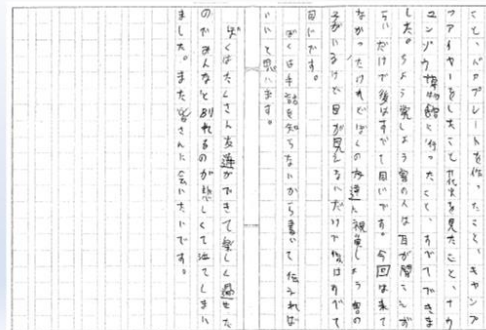 くて、バケプレートを作ったこと、キャンプ
ファイヤーをしたこと、花火を見たこと、ナウ
マンゾウ博物館に行ったこと、すべてできま
した。ちょう覚しょう害の人は耳が聞こえが
ないだけで後はすべて同じです。今回は来て
なかったけれどぼくの友達に視覚しょう害の
子がいるけど目が見えないだけで後はすべて
同じです。
ぼくは手話を知らないから書いて伝えれば
いいと思います。
ぼくはたくさん友達ができて楽しく過せた
のでみんなと別れるのが悲しくて泣てしまい
ました。また皆さんに会いたいです。